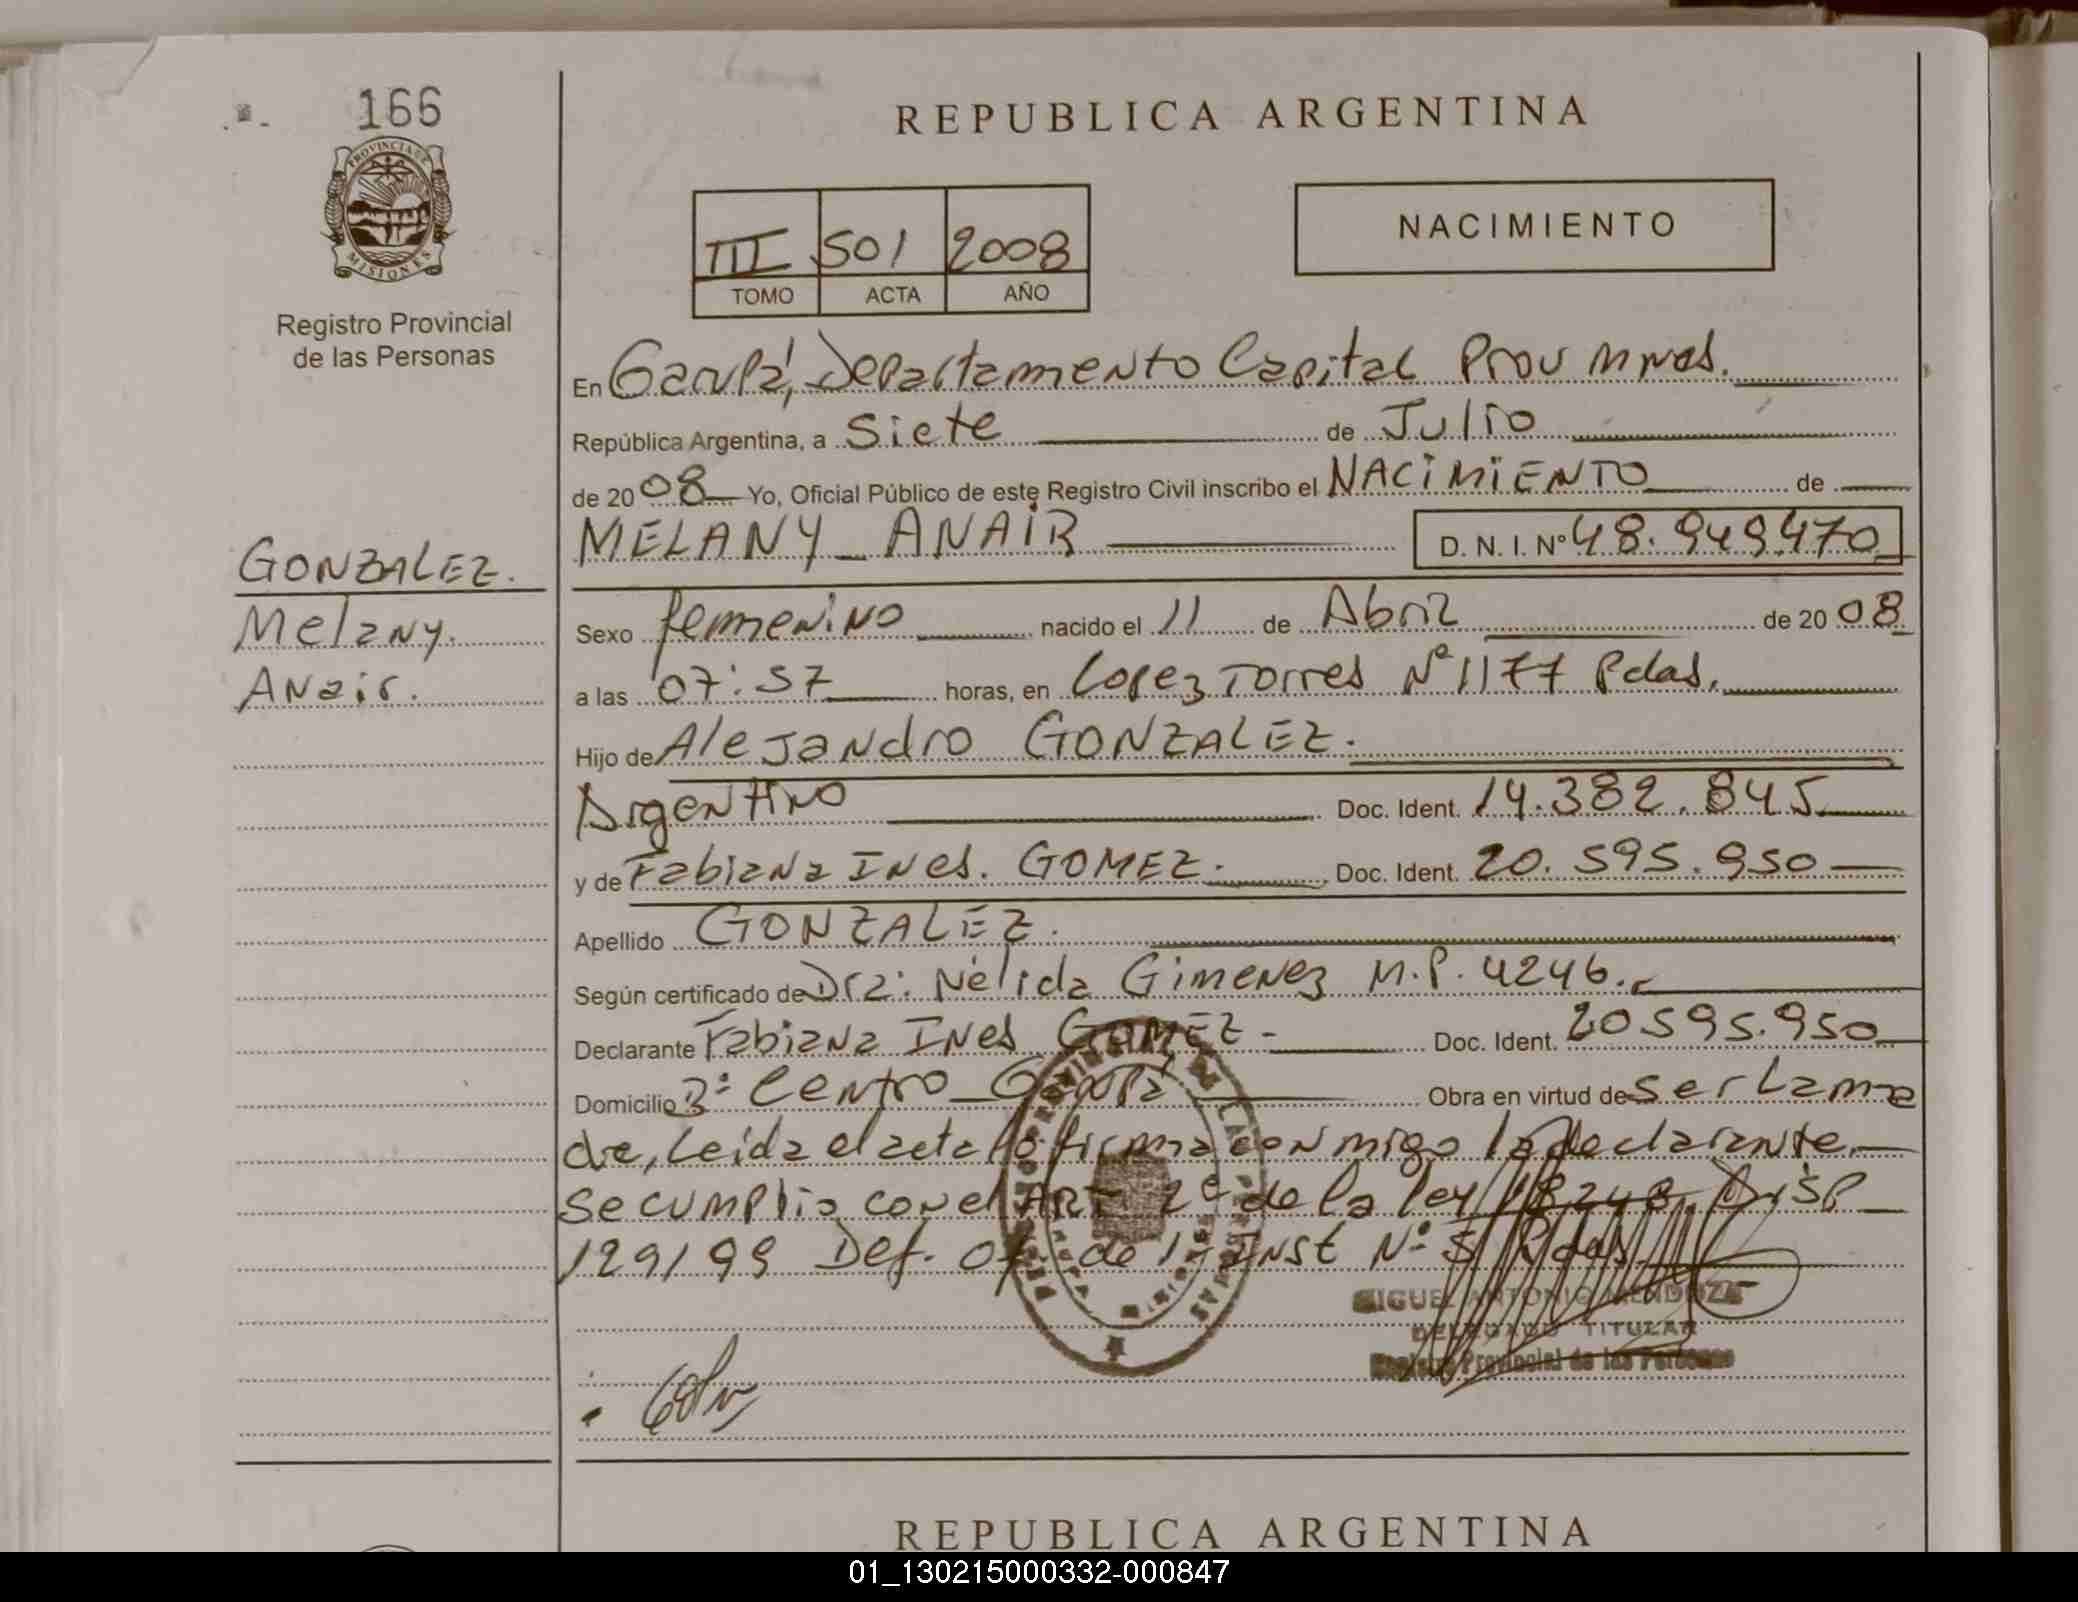 166
PROVINCIA DE
MISIONES
Registro Provincial
de las Personas
GONZALEZ.
Melany.
Anair.
REPUBLICA ARGENTINA
III 501 2008
TOMO ACTA AÑO
NACIMIENTO
En Garupá, Departamento Capital Prov Mnes.
República Argentina, a Siete de Julio
de 2008 Yo, Oficial Público de este Registro Civil inscribo el NACIMIENTO de
MELANY ANAIR D. N. I. Nº 48.949.470
Sexo femenino nacido el 11 de Abril de 2008
a las 07:57 horas, en Lopez Torres Nº 1177 Pdas.
Hijo de Alejandro GONZALEZ.
Argentino Doc. Ident. 14.382.845
y de Fabiana Ines. GOMEZ. Doc. Ident. 20.595.950
Apellido GONZALEZ.
Según certificado de Dra: Nélida Gimenez M.P. 4246.
Declarante Fabiana Ines GOMEZ - Doc. Ident. 20595.950
Domicilio Bº Centro Garupá Obra en virtud de ser La ma
dre, Leída el acta la firma conmigo la declarante.
Se cumplio con el ART 2º de la ley 18248. Disp
129/99 Def. Of. de 1º Inst Nº 5 Pdas
MIGUEL ANTONIO MENDOZA
DELEGADO TITULAR
Registro Provincial de las Personas
REPUBLICA ARGENTINA
01_130215000332-000847